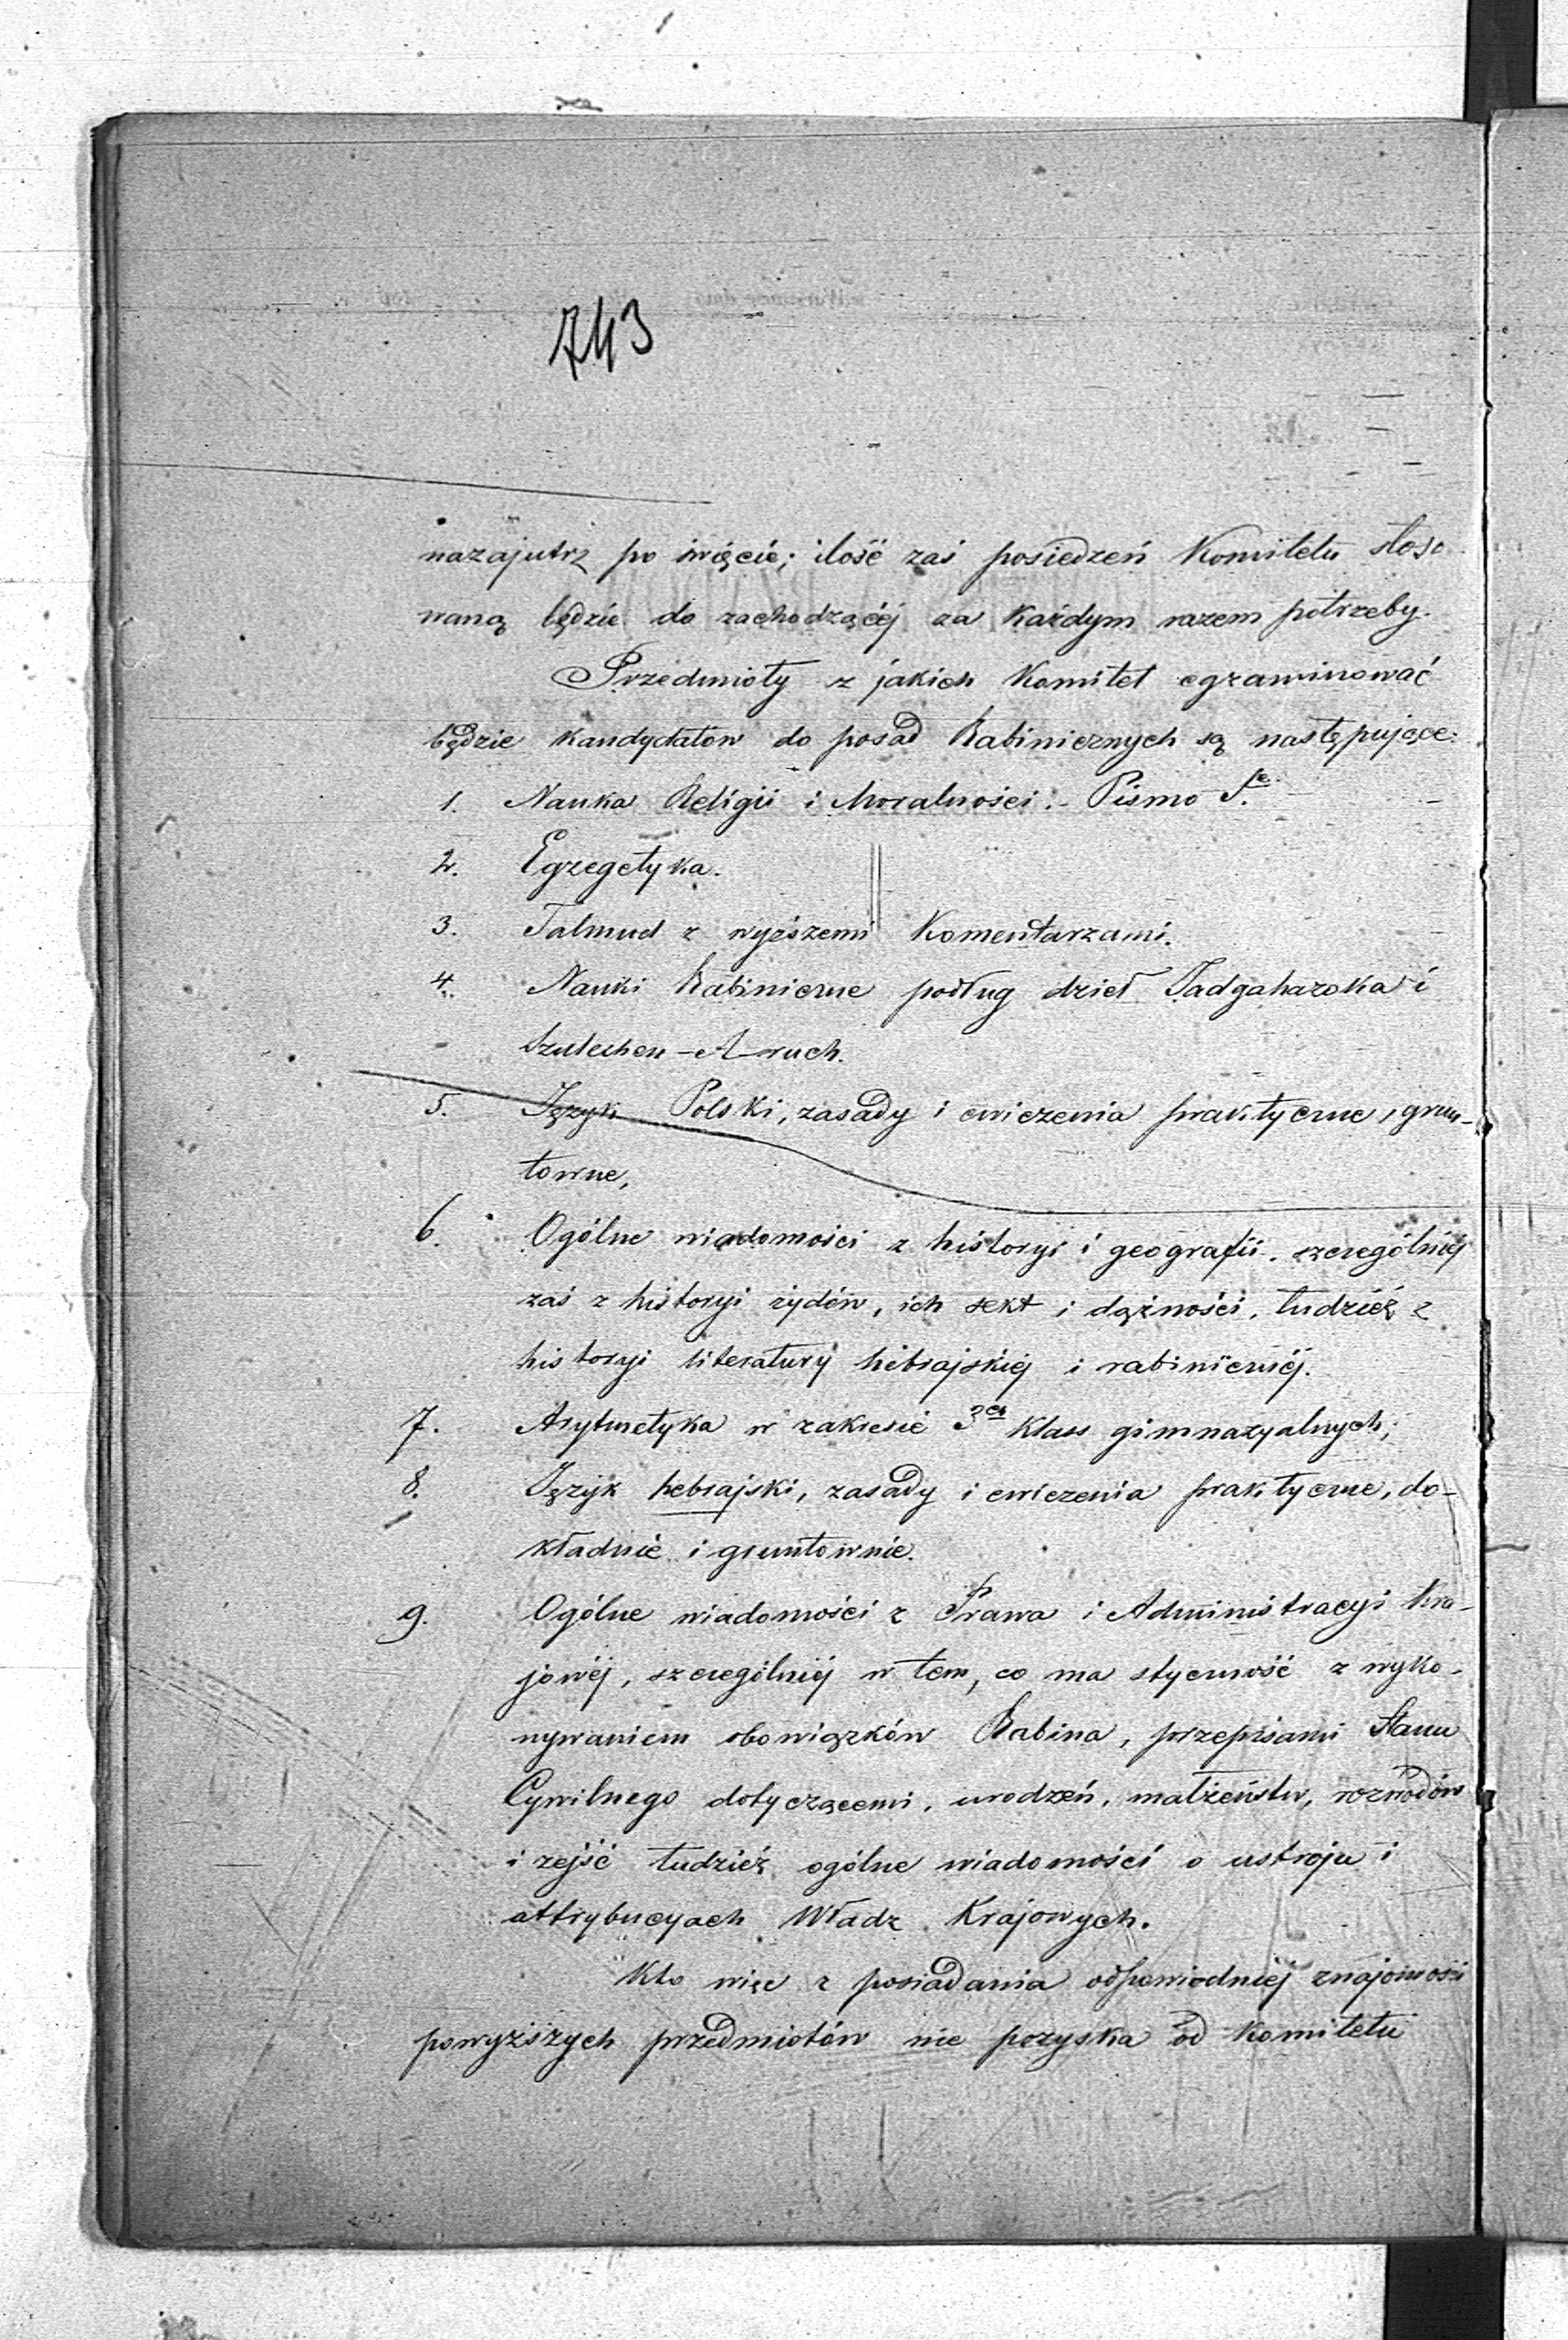 743
nazajutrz po święcie; ilość zaś posiedzeń Komitetu stoso
waną będzie do zachodzącéj za każdym razem potrzeby.
Przedmioty z jakich Komitet egzaminować
będzie kandydatów do posad Rabinicznych są następujące:
1. Nauka Religii i Moralności:- Pismo Ś.te
2. Egzegetyka.
3. Talmud z wyższemi Komentarzami.
4. Nauki Rabiniczne podług dzieł Jadgahazoka i
Szulechen-A-ruch.
5. Język Polski, zasady i cwiczenia praktyczne, grun-
towne,
6. Ogólne wiadomości z historyi i geografii, szczególniéj
zaś z historyi żydów, ich sekt i dążności, tudzież z
historyi literatury hebrajskiéj i rabinicznéj.
7. Arytmetyka w zakresie 3ch klass gimnazyalnych;
8. Język hebrajski, zasady i cwiczenia praktyczne, do-
kładnie i gruntownie.
9. Ogólne wiadomości z Prawa i Administracyi Kra-
jowéj, szczególniéj w tem, co ma styczność z wyko-
nywaniem obowiązków Rabina, przepisami Stanu
Cywilnego dotyczącemi, urodzeń, małżeństw, rozwodów
i zejść tudzież ogólne wiadomości o ustroju i
attrybucyach Władz Krajowych.
Kto więc z posiadania odpowiedniéj znajomości
powyższych przedmiotów nie pozyska od Komitetu